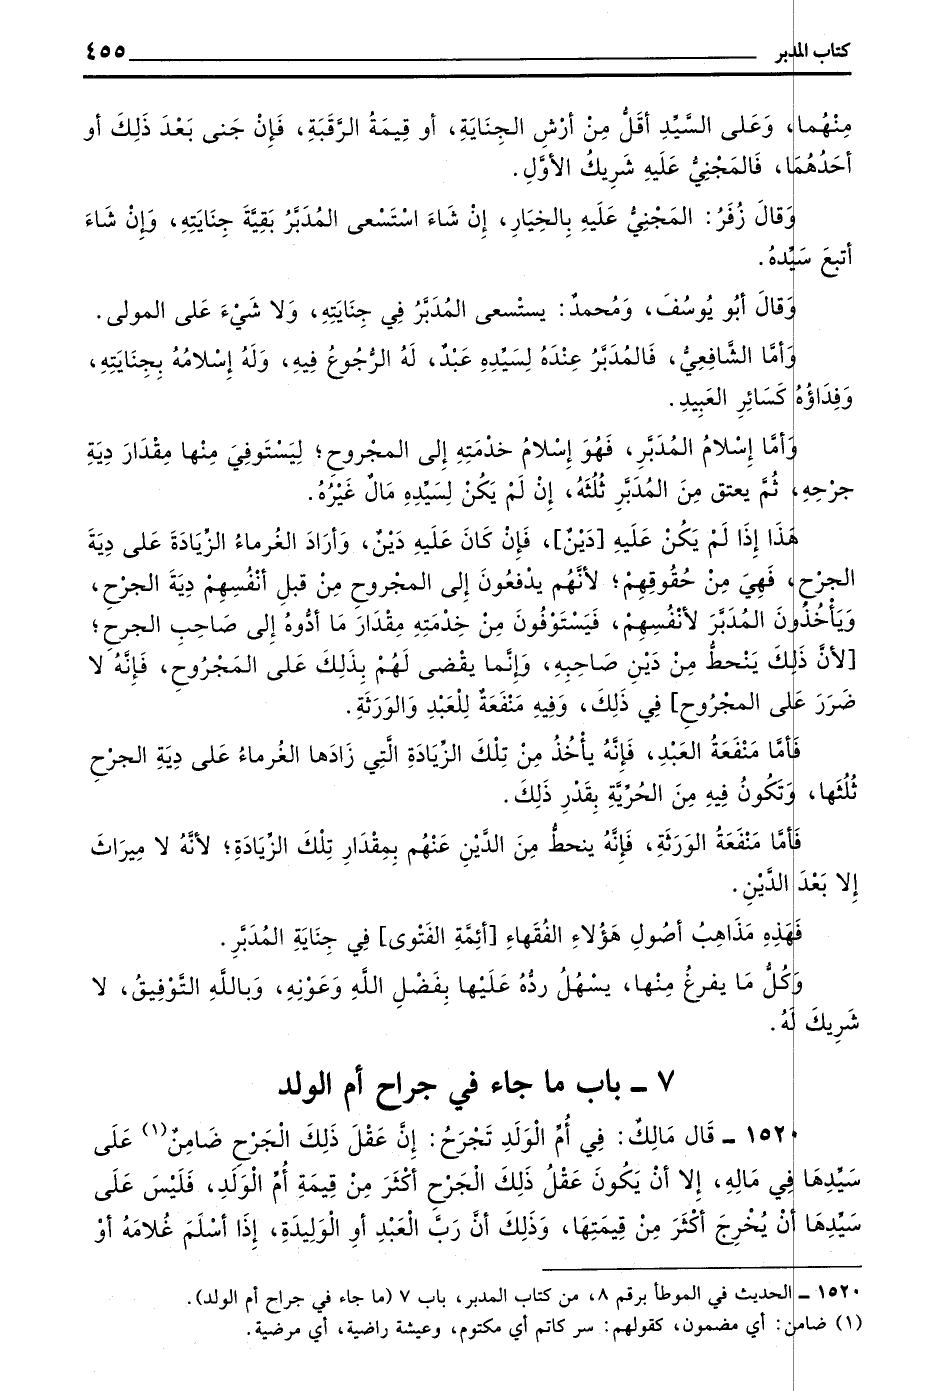 كتاب المدبر ٤٥٥
مِنْهُما، وَعَلى السَّيِّدِ أقَلُّ مِنْ أرْشِ الجِنَايَةِ، أو قِيمَةُ الرَّقَبَةِ، فَإِنْ جَنى بَعْدَ ذَلِكَ أو
أحَدُهُمَا، فَالمَجْنِيُّ عَلَيهِ شَرِيكُ الأوَّلِ.
وَقالَ زُفَرُ: المَجْنِيُّ عَلَيهِ بِالخِيَارِ، إنْ شَاءَ اسْتَسْعى المُدَبَّرُ بَقِيَّةَ جِنَايَتِهِ، وَإِنْ شَاءَ
أتبعَ سَيِّدهُ.
وَقالَ أبُو يُوسُفَ، وَمُحمدٌ: يستْسعى المُدَبَّرُ فِي جِنَايَتِهِ، وَلا شَيْءَ عَلى المولى.
وَأمَّا الشَّافِعِيُّ، فَالمُدَبَّرُ عِنْدَهُ لِسَيِّدِهِ عَبْدٌ، لَهُ الرُّجُوعُ فِيهِ، وَلَهُ إسْلامُهُ بِجِنَايَتِهِ،
وَفِدَاؤُهُ كَسَائِرِ العَبِيدِ.
وَأمَّا إسْلامُ المُدَبَّرِ، فَهُوَ إسْلامُ خدْمَتِهِ إلى المجْروحِ؛ لِيَسْتَوفِيَ مِنْها مِقْدَارَ دِيَةِ
جرْحِهِ، ثُمَّ يعتق مِنَ المُدَبَّرِ ثُلُثَهُ، إنْ لَمْ يَكُنْ لِسَيِّدِهِ مَالٌ غَيْرُهُ.
هَذَا إذَا لَمْ يَكُنْ عَلَيهِ [دَيْنٌ]، فَإِنْ كَانَ عَلَيهِ دَيْنٌ، وَأرَادَ الغُرماءُ الزِّيَادَةَ عَلى دِيَةِ
الجرْحِ، فَهِيَ مِنْ حُقُوقِهِمْ؛ لأنَّهُم يدْفعُونَ إلى المجْروحِ مِنْ قبلِ أنْفُسِهِمْ دِيَةَ الجرْحِ،
وَيَأْخُذُونَ المُدَبَّرَ لأنْفُسِهِمْ، فَيَسْتَوْفُونَ مِنْ خِدْمَتِهِ مِقْدَارَ مَا أدُّوهُ إلى صَاحِبِ الجرحِ؛
[لأنَّ ذَلِكَ يَنْحطُّ مِنْ دَيْنِ صَاحِبِهِ، وَإِنَّما يقْضى لَهُمْ بِذَلِكَ عَلى المَجْرُوحِ، فَإِنَّهُ لا
ضَرَرَ عَلى المجْرُوحِ] فِي ذَلِكَ، وَفِيهِ مَنْفَعَةٌ لِلْعَبْدِ وَالوَرَثَةِ.
فَأمَّا مَنْفَعَةُ العَبْدِ، فَإِنَّهُ يأْخُذُ مِنْ تِلْكَ الزِّيَادَةِ الَّتِي زَادَها الغُرماءُ عَلى دِيَةِ الجرحِ
ثُلُثَها، وَتَكُونُ فِيهِ مِنَ الحُرِّيَّةِ بِقَدْرِ ذَلِكَ.
فَأمَّا مَنْفَعَةُ الوَرَثَةِ، فَإِنَّهُ ينحطُّ مِنَ الدَّيْنِ عَنْهُم بِمِقْدَارِ تِلْكَ الزِّيَادَةِ؛ لأنَّهُ لا مِيرَاثَ
إلا بَعْدَ الدَّيْنِ.
فَهَذِهِ مَذَاهِبُ أصُولِ هَؤُلاءِ الفُقَهاءِ [أئِمَّةِ الفَتْوى] فِي جِنَايَةِ المُدَبَّرِ.
وَكُلُّ مَا يفرغُ مِنْها، يسْهُلُ ردُّهُ عَلَيْها بِفَضْلِ اللَّهِ وَعَوْنِهِ، وَبِاللَّهِ التَّوْفِيقُ، لا
شَرِيكَ لَهُ.
٧ ـ باب ما جاء في جراح أم الولد
١٥٢٠ ـ قَال مَالِكٌ: فِي أُمِّ الْوَلَدِ تَجْرَحُ: إنَّ عَقْلَ ذَلِكَ الْجَرْحِ ضَامِنٌ(١) عَلَى
سَيِّدِهَا فِي مَالِهِ، إلا أنْ يَكُونَ عَقْلُ ذَلِكَ الْجَرْحِ أكْثَرَ مِنْ قِيمَةِ أُمِّ الْوَلَدِ، فَلَيْسَ عَلَى
سَيِّدِهَا أنْ يُخْرِجَ أكْثَرَ مِنْ قِيمَتِهَا، وَذَلِكَ أنَّ رَبَّ الْعَبْدِ أوِ الْوَلِيدَةِ، إذَا أسْلَمَ غُلامَهُ أوْ
١٥٢٠ ـ الحديث في الموطأ برقم ٨، من كتاب المدبر، باب ٧ (ما جاء في جراح أم الولد).
(١) ضامن: أي مضمون، كقولهم: سر كاتم أي مكتوم، وعيشة راضية، أي مرضية.